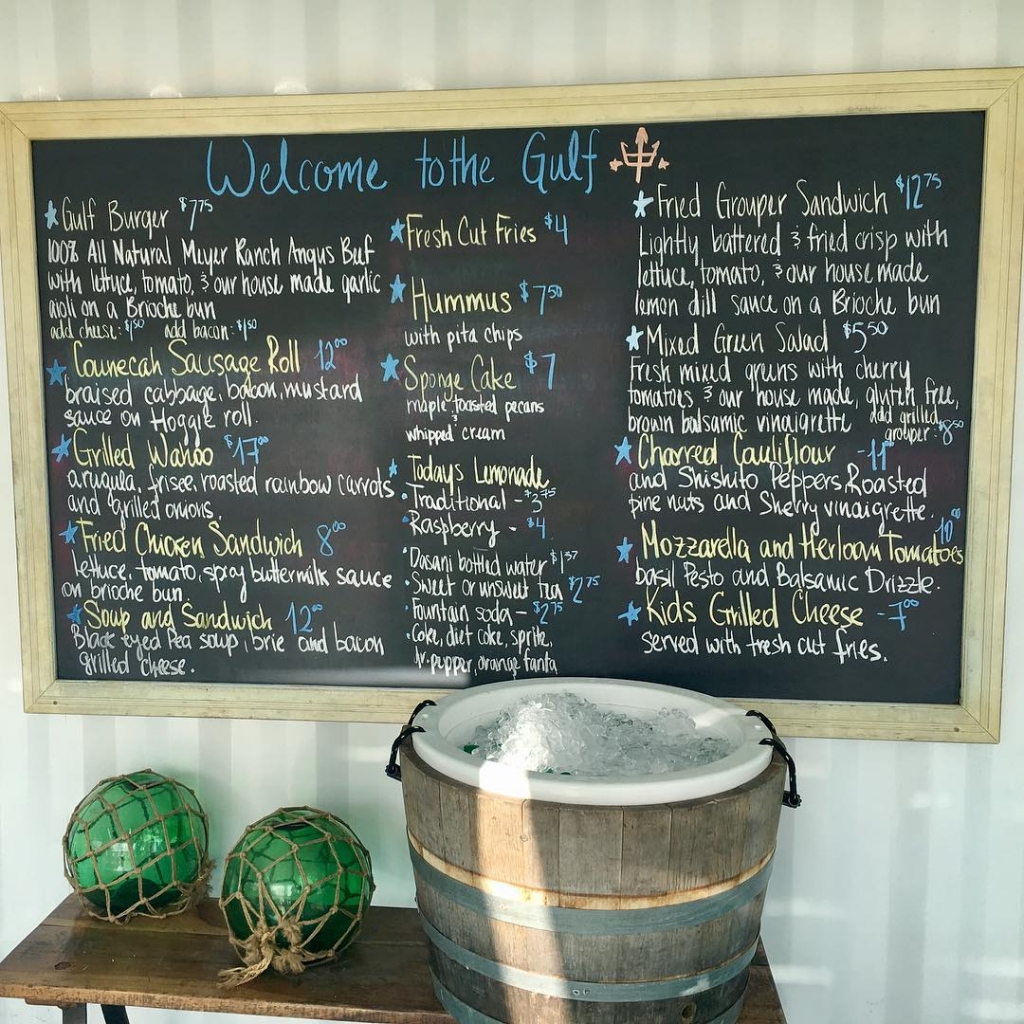 Welcome to the Gulf
Gulf Burger $7.75
100% All Natural Meyer Ranch Angus Beef
with lettuce, tomato, & our house made garlic
aioli on a Brioche bun
add cheese: $1.50 add bacon: $1.50
Counecah Sausage Roll 12.00
braised cabbage, bacon, mustard
sauce on Hoggie roll.
Grilled Wahoo $17.00
arugula, frisee, roasted rainbow carrots
and grilled onions.
Fried Chicken Sandwich 8.00
lettuce, tomato, spicy buttermilk sauce
on brioche bun.
Soup and Sandwich 12.00
Black eyed Pea soup, brie and bacon
grilled cheese.
Fresh Cut Fries $4
Hummus $7.50
with pita chips
Sponge Cake $7
maple toasted pecans
&
whipped cream
Todays Lemonade
• Traditional - $3.75
• Raspberry - $4
• Dasani bottled water $1.37
• Sweet or unsweet tea $2.75
• Fountain soda - $2.75
• Coke, diet coke, sprite,
dr. pepper, orange fanta
Fried Grouper Sandwich $12.75
Lightly battered & fried crisp with
lettuce, tomato, & our house made
lemon dill sauce on a Brioche bun
Mixed Green Salad $5.50
Fresh mixed greens with cherry
tomatoes & our house made, gluten free,
brown balsamic vinaigrette add grilled
grouper: $8.50
Charred Cauliflour - 11.00
and Shishito Peppers, Roasted
pine nuts and Sherry vinaigrette.
Mozzarella and Heirloom Tomatoes 10.00
basil Pesto and Balsamic Drizzle.
Kids Grilled Cheese - 7.00
served with fresh cut fries.